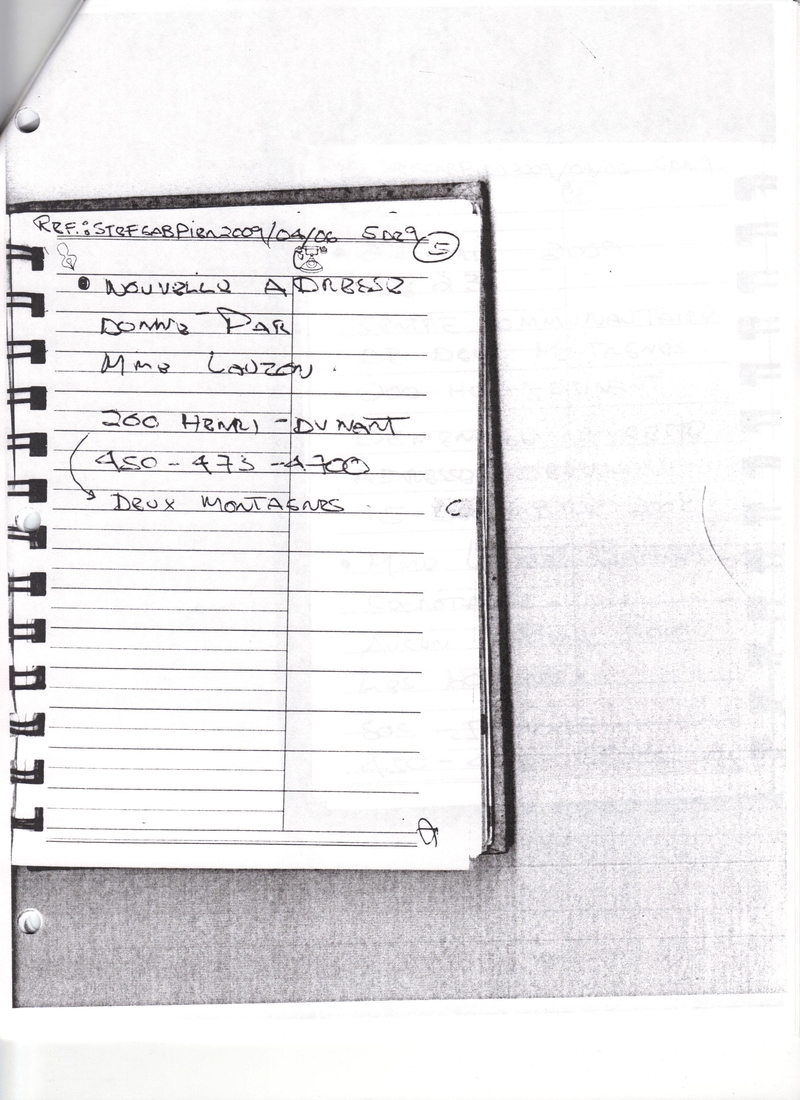 REF.: STEFGABPIER2009/04/06 5 DE 9 5
• NOUVELLE ADRESSE
DONNE PAR
MME LAUZON.
200 HENRI-DUNANT
450-473-4700
DEUX MONTAGNES. C